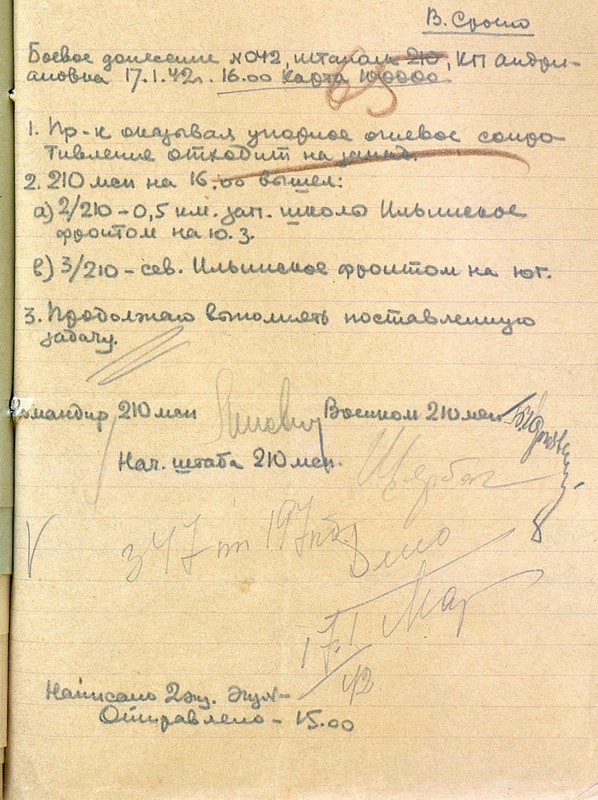 В. Срочно
Боевое донесение №042, штапам 210, КП Андри-
ановка 17.1.42г. 16.00 карта 100000
65
1. Пр-к оказывая упорное огневое сопро
тивление отходит на запад.
2. 210 мсп на 16.00 вышел:
а) 2/210 - 0,5 км. зап. школы Ильинское
фронтом на ю.з.
в) 3/210 - сев. Ильинское фронтом на юг.
3. Продолжаю выполнять поставленную
задачу.
Командир 210 мсп Военком 210 мсп
Нач. штаба 210 мсп. Щербак
V
17.1
42
Написано 2 экз. экз №
Отправлено - 15.00